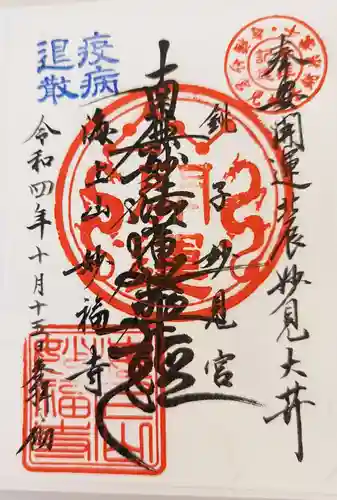 奉安開運北辰妙見大菩薩
銚子妙見宮
南無妙法蓮華経
海上山妙福寺
令和四年十月十五日奉拝
疫病
退散
開運
海上山
妙福寺